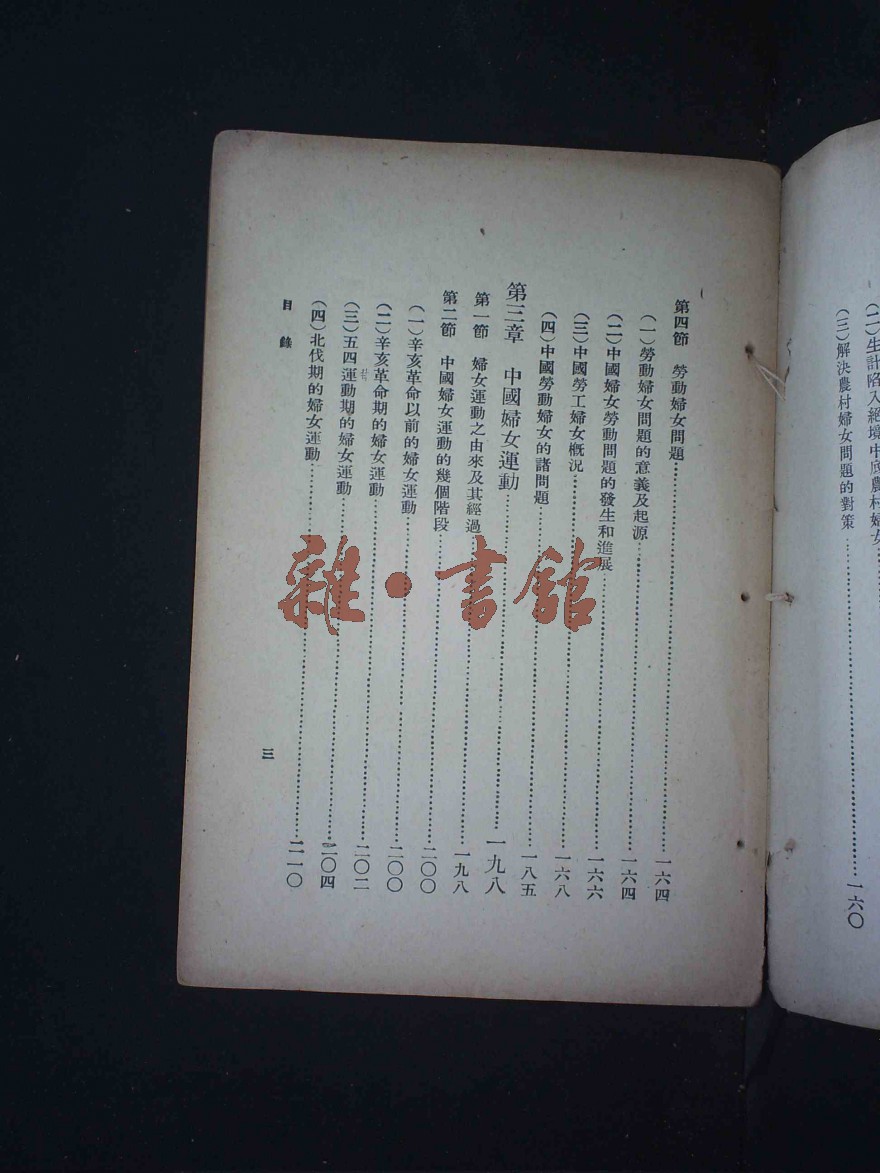 (二)生計陷入絕境中底農村婦女
(三)解決農村婦女問題的對策……一六〇
第四節 勞動婦女問題……一六四
(一)勞動婦女問題的意義及起源……一六四
(二)中國婦女勞動問題的發生和進展……一六六
(三)中國勞工婦女概況……一六八
(四)中國勞動婦女的諸問題……一八五
第三章 中國婦女運動……一九八
第一節 婦女運動之由來及其經過……一九八
第二節 中國婦女運動的幾個階段……二〇〇
(一)辛亥革命以前的婦女運動……二〇〇
(二)辛亥革命期的婦女運動……二〇二
(三)五四運動期的婦女運動……二〇四
(四)北伐期的婦女運動……二一〇
目錄
三
雜·書館